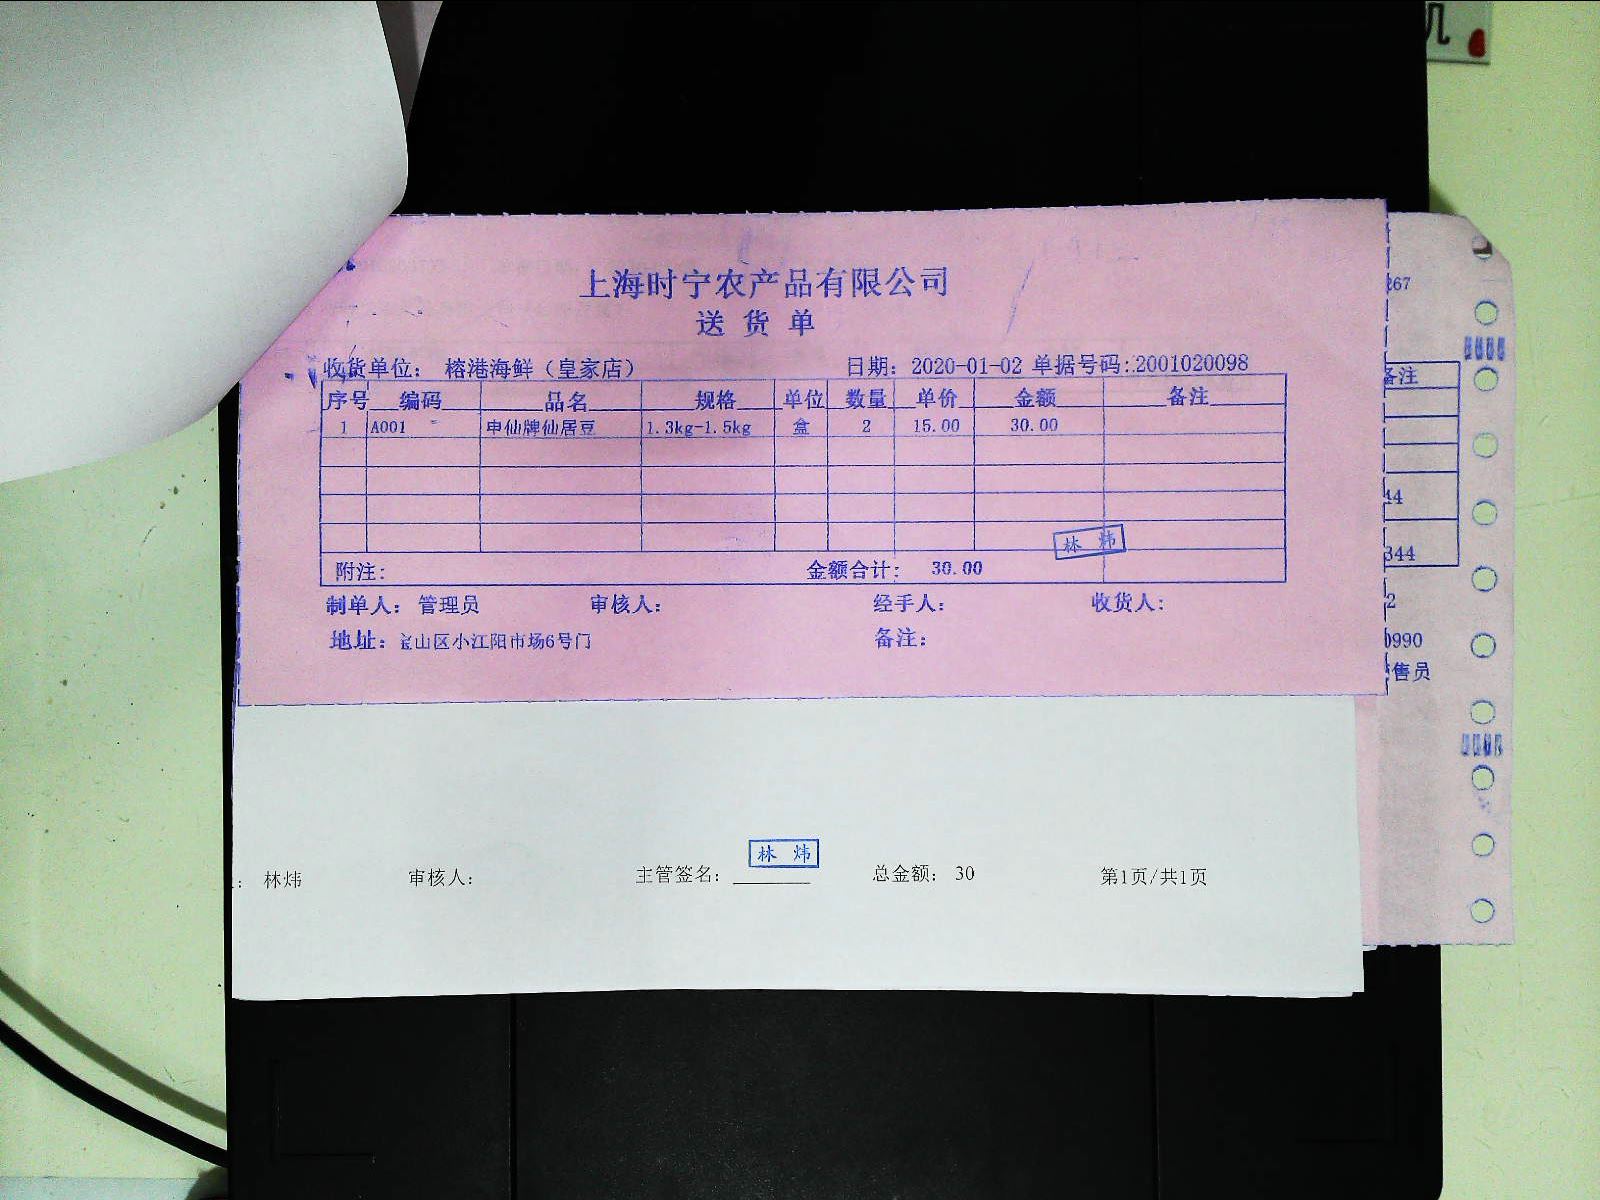 几
上海时宁农产品有限公司
送 货 单
收货单位： 榕港海鲜（皇家店） 日期： 2020-01-02 单据号码: 2001020098
序号 编码 品名 规格 单位 数量 单价 金额 备注
1 A001 申仙牌仙居豆 1.3kg-1.5kg 盒 2 15.00 30.00
林 炜
附注: 金额合计: 30.00
制单人: 管理员 审核人: 经手人: 收货人:
地址: 宝山区小江阳市场6号门 备注:
267
备注
44
344
2
0990
售员
林 炜
: 林炜 审核人: 主管签名: 总金额: 30 第1页/共1页